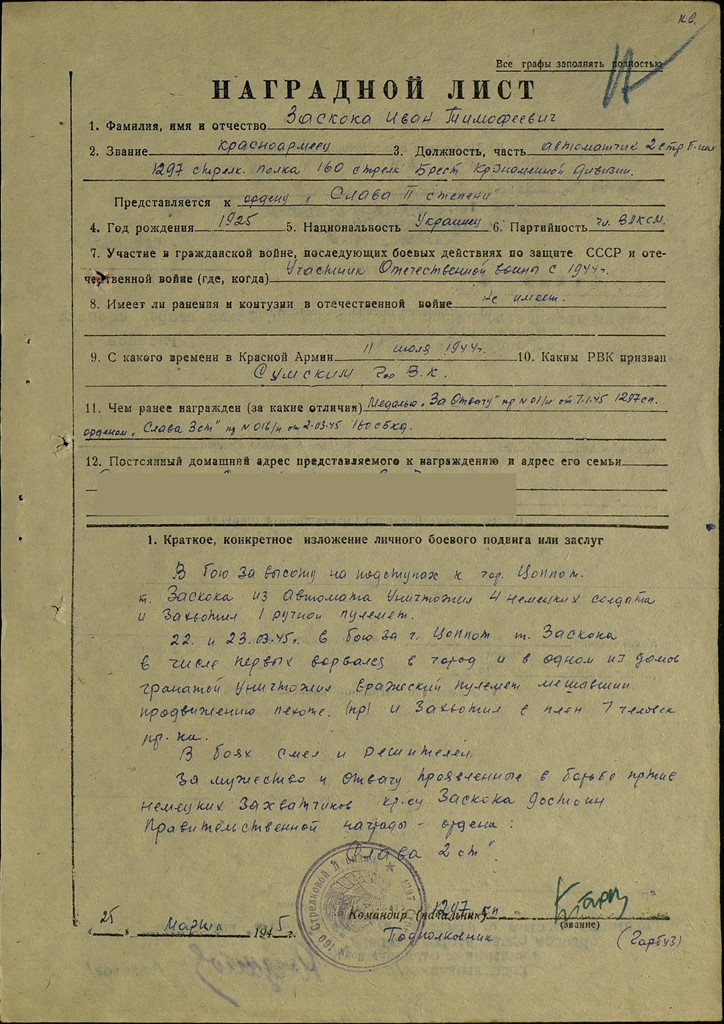 кв.
Все графы заполнять полностью
НАГРАДНОЙ ЛИСТ
1. Фамилия, имя и отчество Заскока Иван Тимофеевич
2. Звание красноармеец 3. Должность, часть автоматчик 2 стр б-на
1297 стрелк. полка 160 стрелк Брест Крзнаменной дивизии.
Представляется к ордену „Слава II степени"
4. Год рождения 1925 5. Национальность Украинец 6. Партийность чл. ВЛКСМ.
7. Участие в гражданской войне, последующих боевых действиях по защите СССР и оте-
чественной войне (где, когда) Участник Отечественной войны с 1944г.
8. Имеет ли ранения и контузии в отечественной войне не имеет.
9. С какого времени в Красной Армии 11 июля 1944г. 10. Каким РВК призван
Сумским Гор В.К.
11. Чем ранее награжден (за какие отличия) Медалью „За Отвагу" пр N 01/н от 7.1.45 1297сп.
орденом „Слава 3 ст" пр N 016/н от 2.03.45 160сбкд.
12. Постоянный домашний адрес представляемого к награждению и адрес его семьи
1. Краткое, конкретное изложение личного боевого подвига или заслуг
В бою за высоту на подступах к гор. Цоппот.
т. Заскока из автомата уничтожил 4 немецких солдата
и захватил 1 ручной пулемет.
22. и 23.03.45г. в бою за г. Цоппот т. Заскока
в числе первых ворвался в город и в одном из домов
гранатой уничтожил вражеский пулемет мешавший
продвижению пехоте. (пр) и захватил в плен 7 человек
пр-ка.
В боях смел и решителен.
За мужество и отвагу проявленные в борьбе против
немецких захватчиков кр-ец Заскока достоин
Правительственной награды - ордена:
„Слава 2 ст".
„25" марта 1945 г.
Командир (начальник) 1297 сп
Подполковник
(звание)
(Гарбуз)